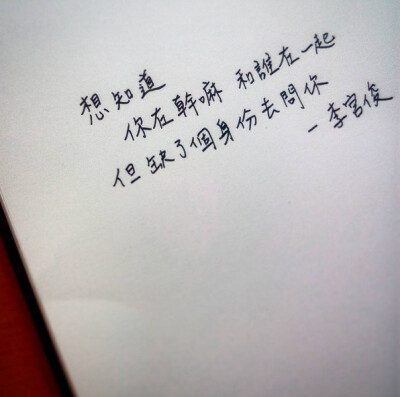 想知道
你在幹嘛 和誰在一起
但缺了個身份去問你
－李宮俊